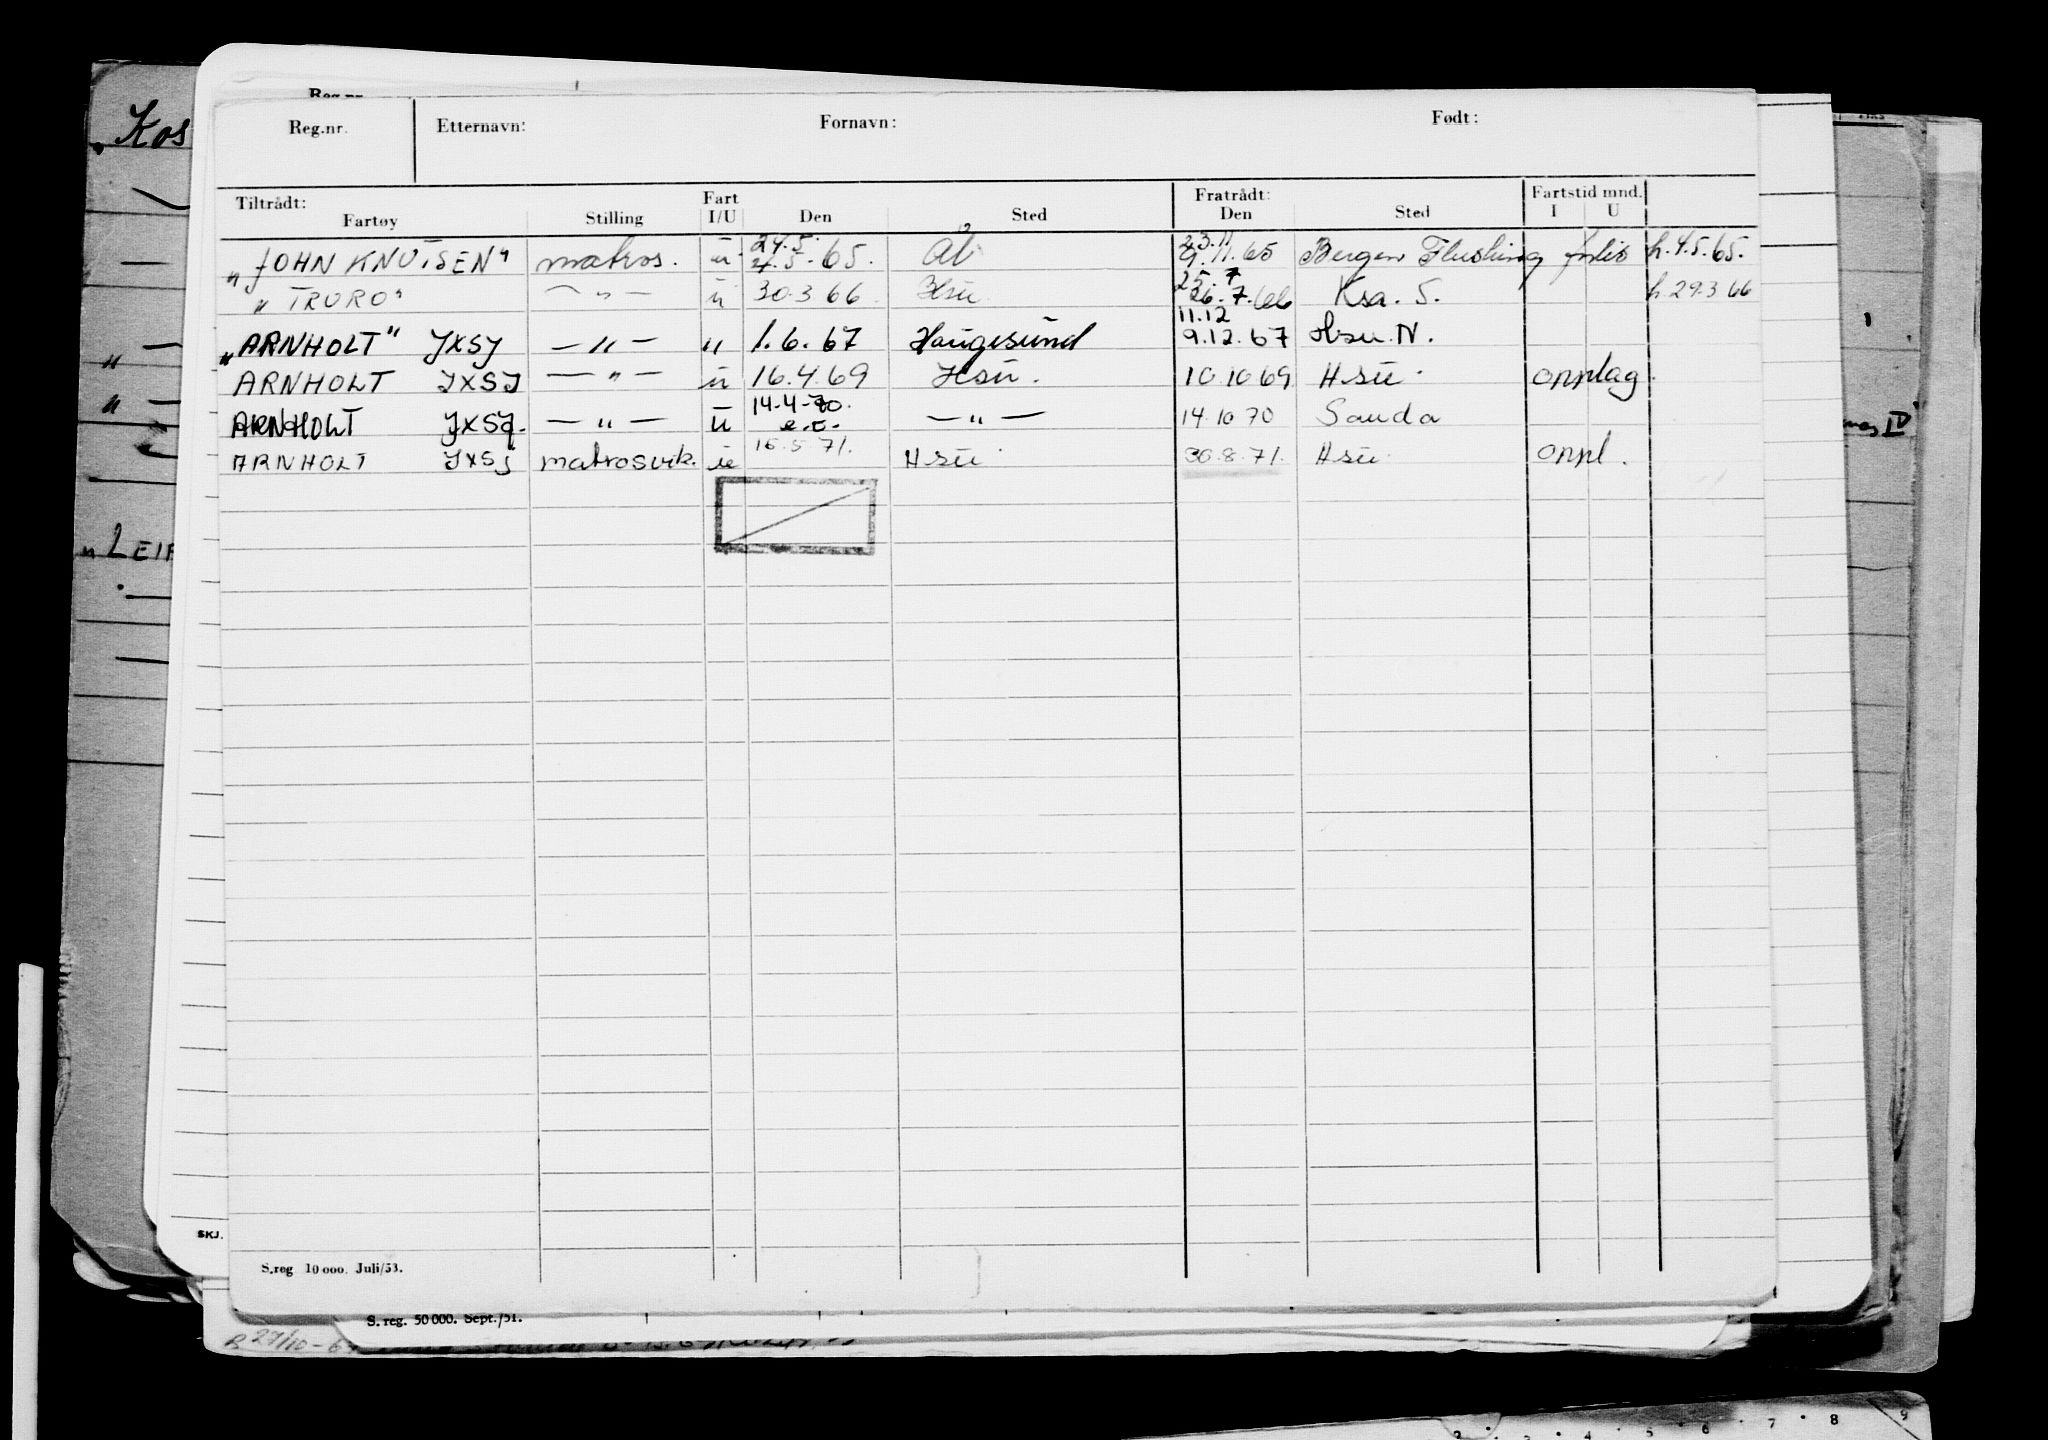 Reg.nr.
Reg.nr. Etternavn: Fornavn: Født:
Kos
Tiltrådt: Fart Fratrådt: Fartstid mnd.
Fartøy Stilling I/U Den Sted Den Sted I U
24.5. 23.11
"JOHN KNUTSEN" matros. u 4.5.65. Ål 9.11.65 Bergen Flushing h.4.5.65.
25.7
"TRURO" — " — u 30.3 66 Hsu 26.7.66 Ksa. S. h.29.3 66
11.12
"ARNHOLT" JXSJ — " — " 1.6.67 Haugesund 9.12.67 Hsu. N.
ARNHOLT JXSJ — " — u 16.4.69 Hsu. 10.10 69 Hsu. opplag.
14.4-70.
ARNHOLT JXSJ. — " — u — " — 14.10 70 Sauda
ARNHOLT JXSJ matrosvik. u 15.5 71. Hsu 30.8.71. Hsu. oppl.
"LEIF
IV
SKJ.
S.reg 10 000. Juli/53.
S. reg. 50 000. Sept./51.
7 8 9
4 5 6